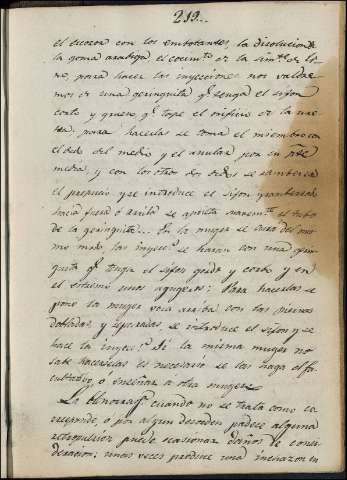 219..
el escozor con los embotantes, la disolucion de
la goma arabiga el cocimto. de la simte. de li-
no, para hacer las inyecciones nos valdre-
mos de una geringuita qe. tenga el sifon
corto y grueso, qe. tope el orificio de la ure-
tra, para hacerlas se toma el miembro con
el dedo del medio y el anular por su pte.
media, y con los otros dos dedos se
el prepucio y se introduce el sifon
hacia fuera ó arriba se aprieta suavemte. el tubo
de la geringuita... En la muger se cura del mis-
mo modo las inyecs. se haran con una gerin-
guita qe. tenga el sifon gordo y corbo y en
el estremo unos agugeros: Para hacerlas se
pone la muger boca arriba con las piernas
dobladas, y separadas, se introduce el sifon y se
hace la inyecn. Si la misma muger no
sabe hacerselas es necesario se las haga el fa-
cultativo, ó enseñar a otra muger.
La blenorrag. cuando no se trata como co-
rresponde, ó por algun desorden padece alguna
retropulsion puede ocasionar daños de consi-
deracion; unas veces produce una inchazon en